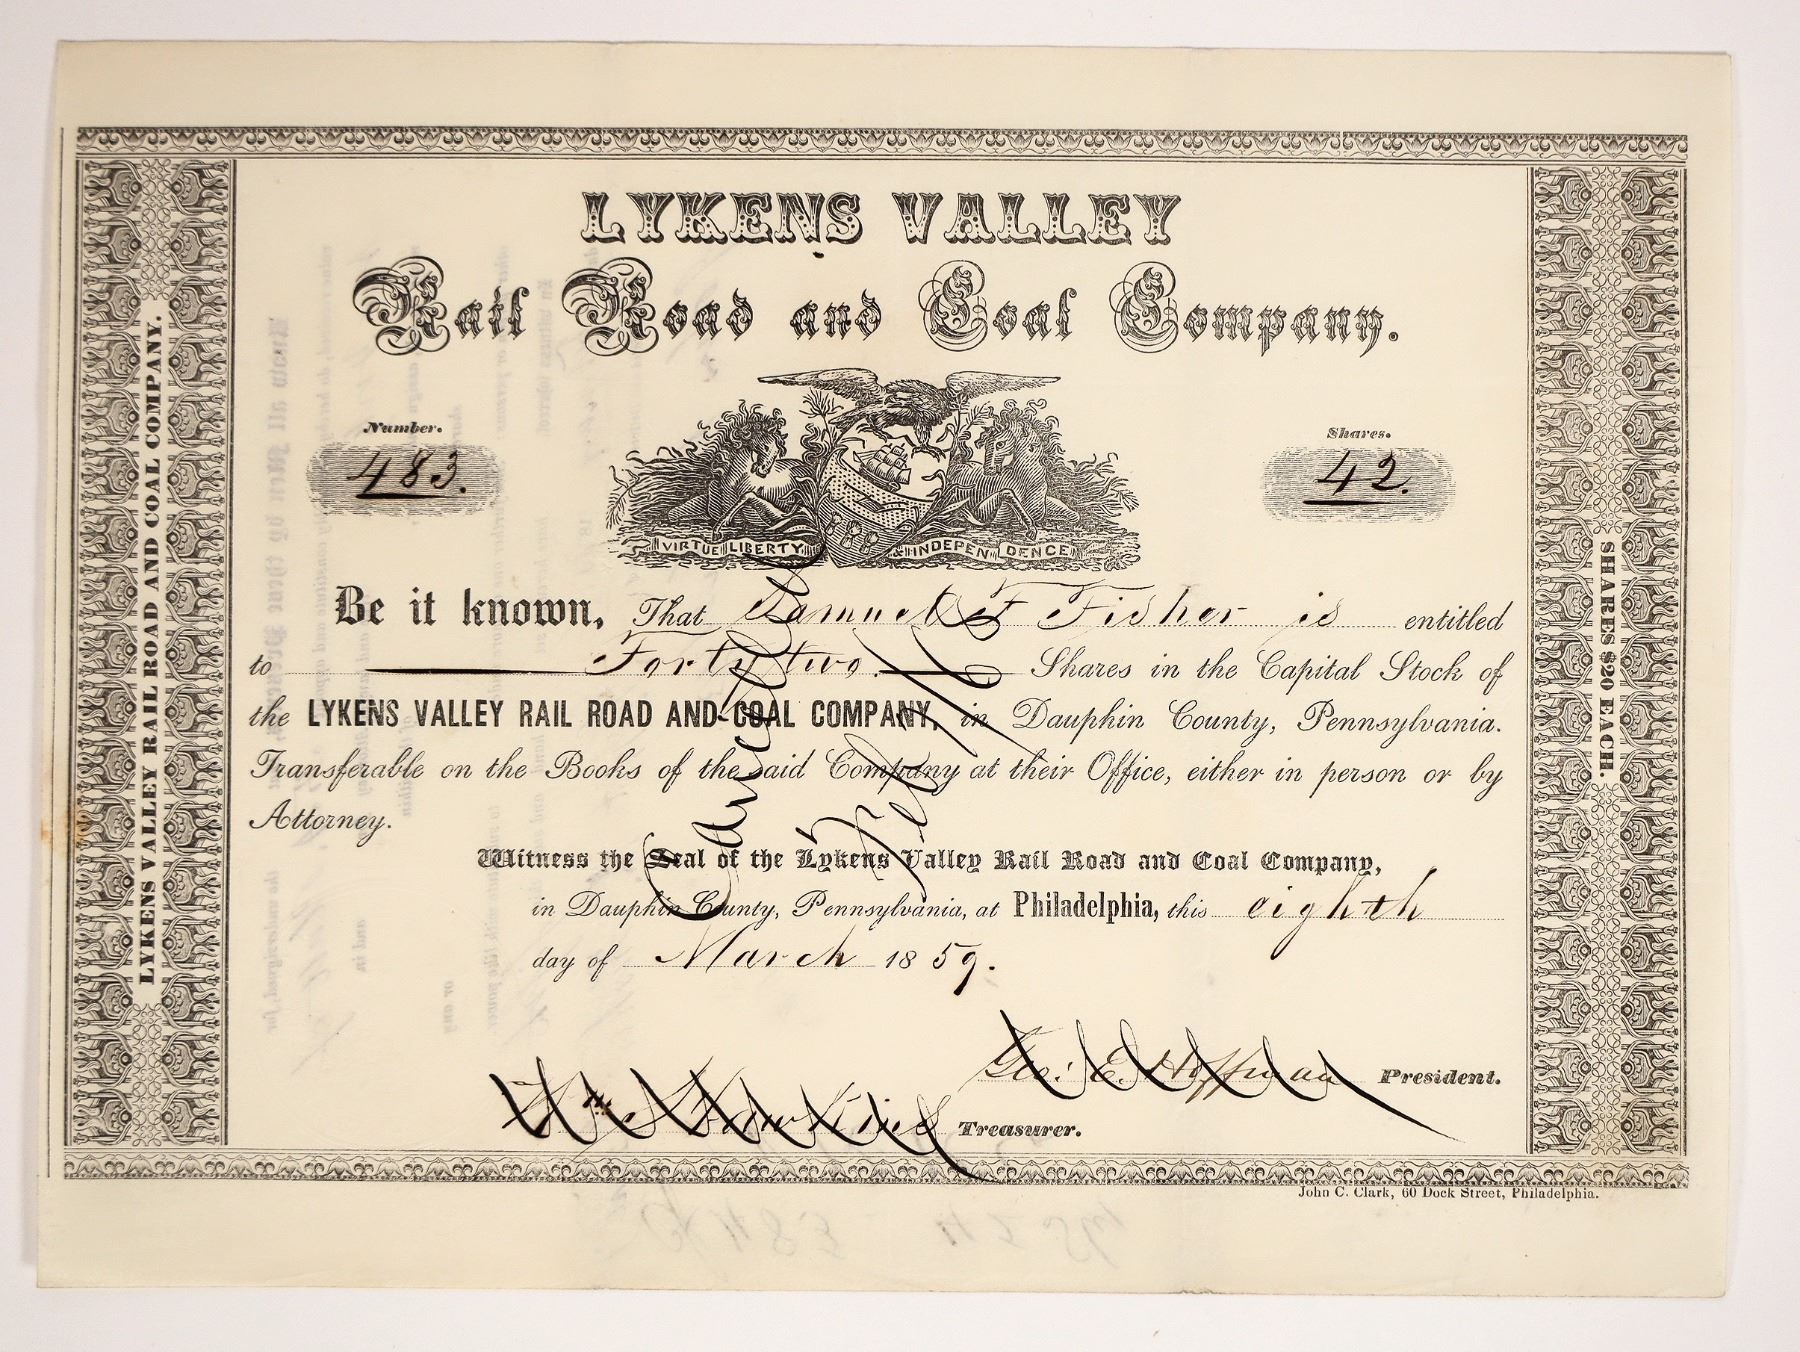 LYKENS VALLEY
Rail Road and Coal Company.
Number.
483.
Shares.
42.
VIRTUE LIBERTY & INDEPENDENCE
Be it known, That Samuel F Fisher is entitled
to Forty two. Shares in the Capital Stock of
the LYKENS VALLEY RAIL ROAD AND COAL COMPANY, in Dauphin County, Pennsylvania.
Transferable on the Books of the said Company at their Office, either in person or by
Attorney.
Witness the Seal of the Lykens Valley Rail Road and Coal Company,
in Dauphin County, Pennsylvania, at Philadelphia, this eighth
day of March 1859.
Geo: E. Hoffman President.
Wm S Hawkins Treasurer.
Cancelled
LYKENS VALLEY RAIL ROAD AND COAL COMPANY.
SHARES $20 EACH.
John C. Clark, 60 Dock Street, Philadelphia.